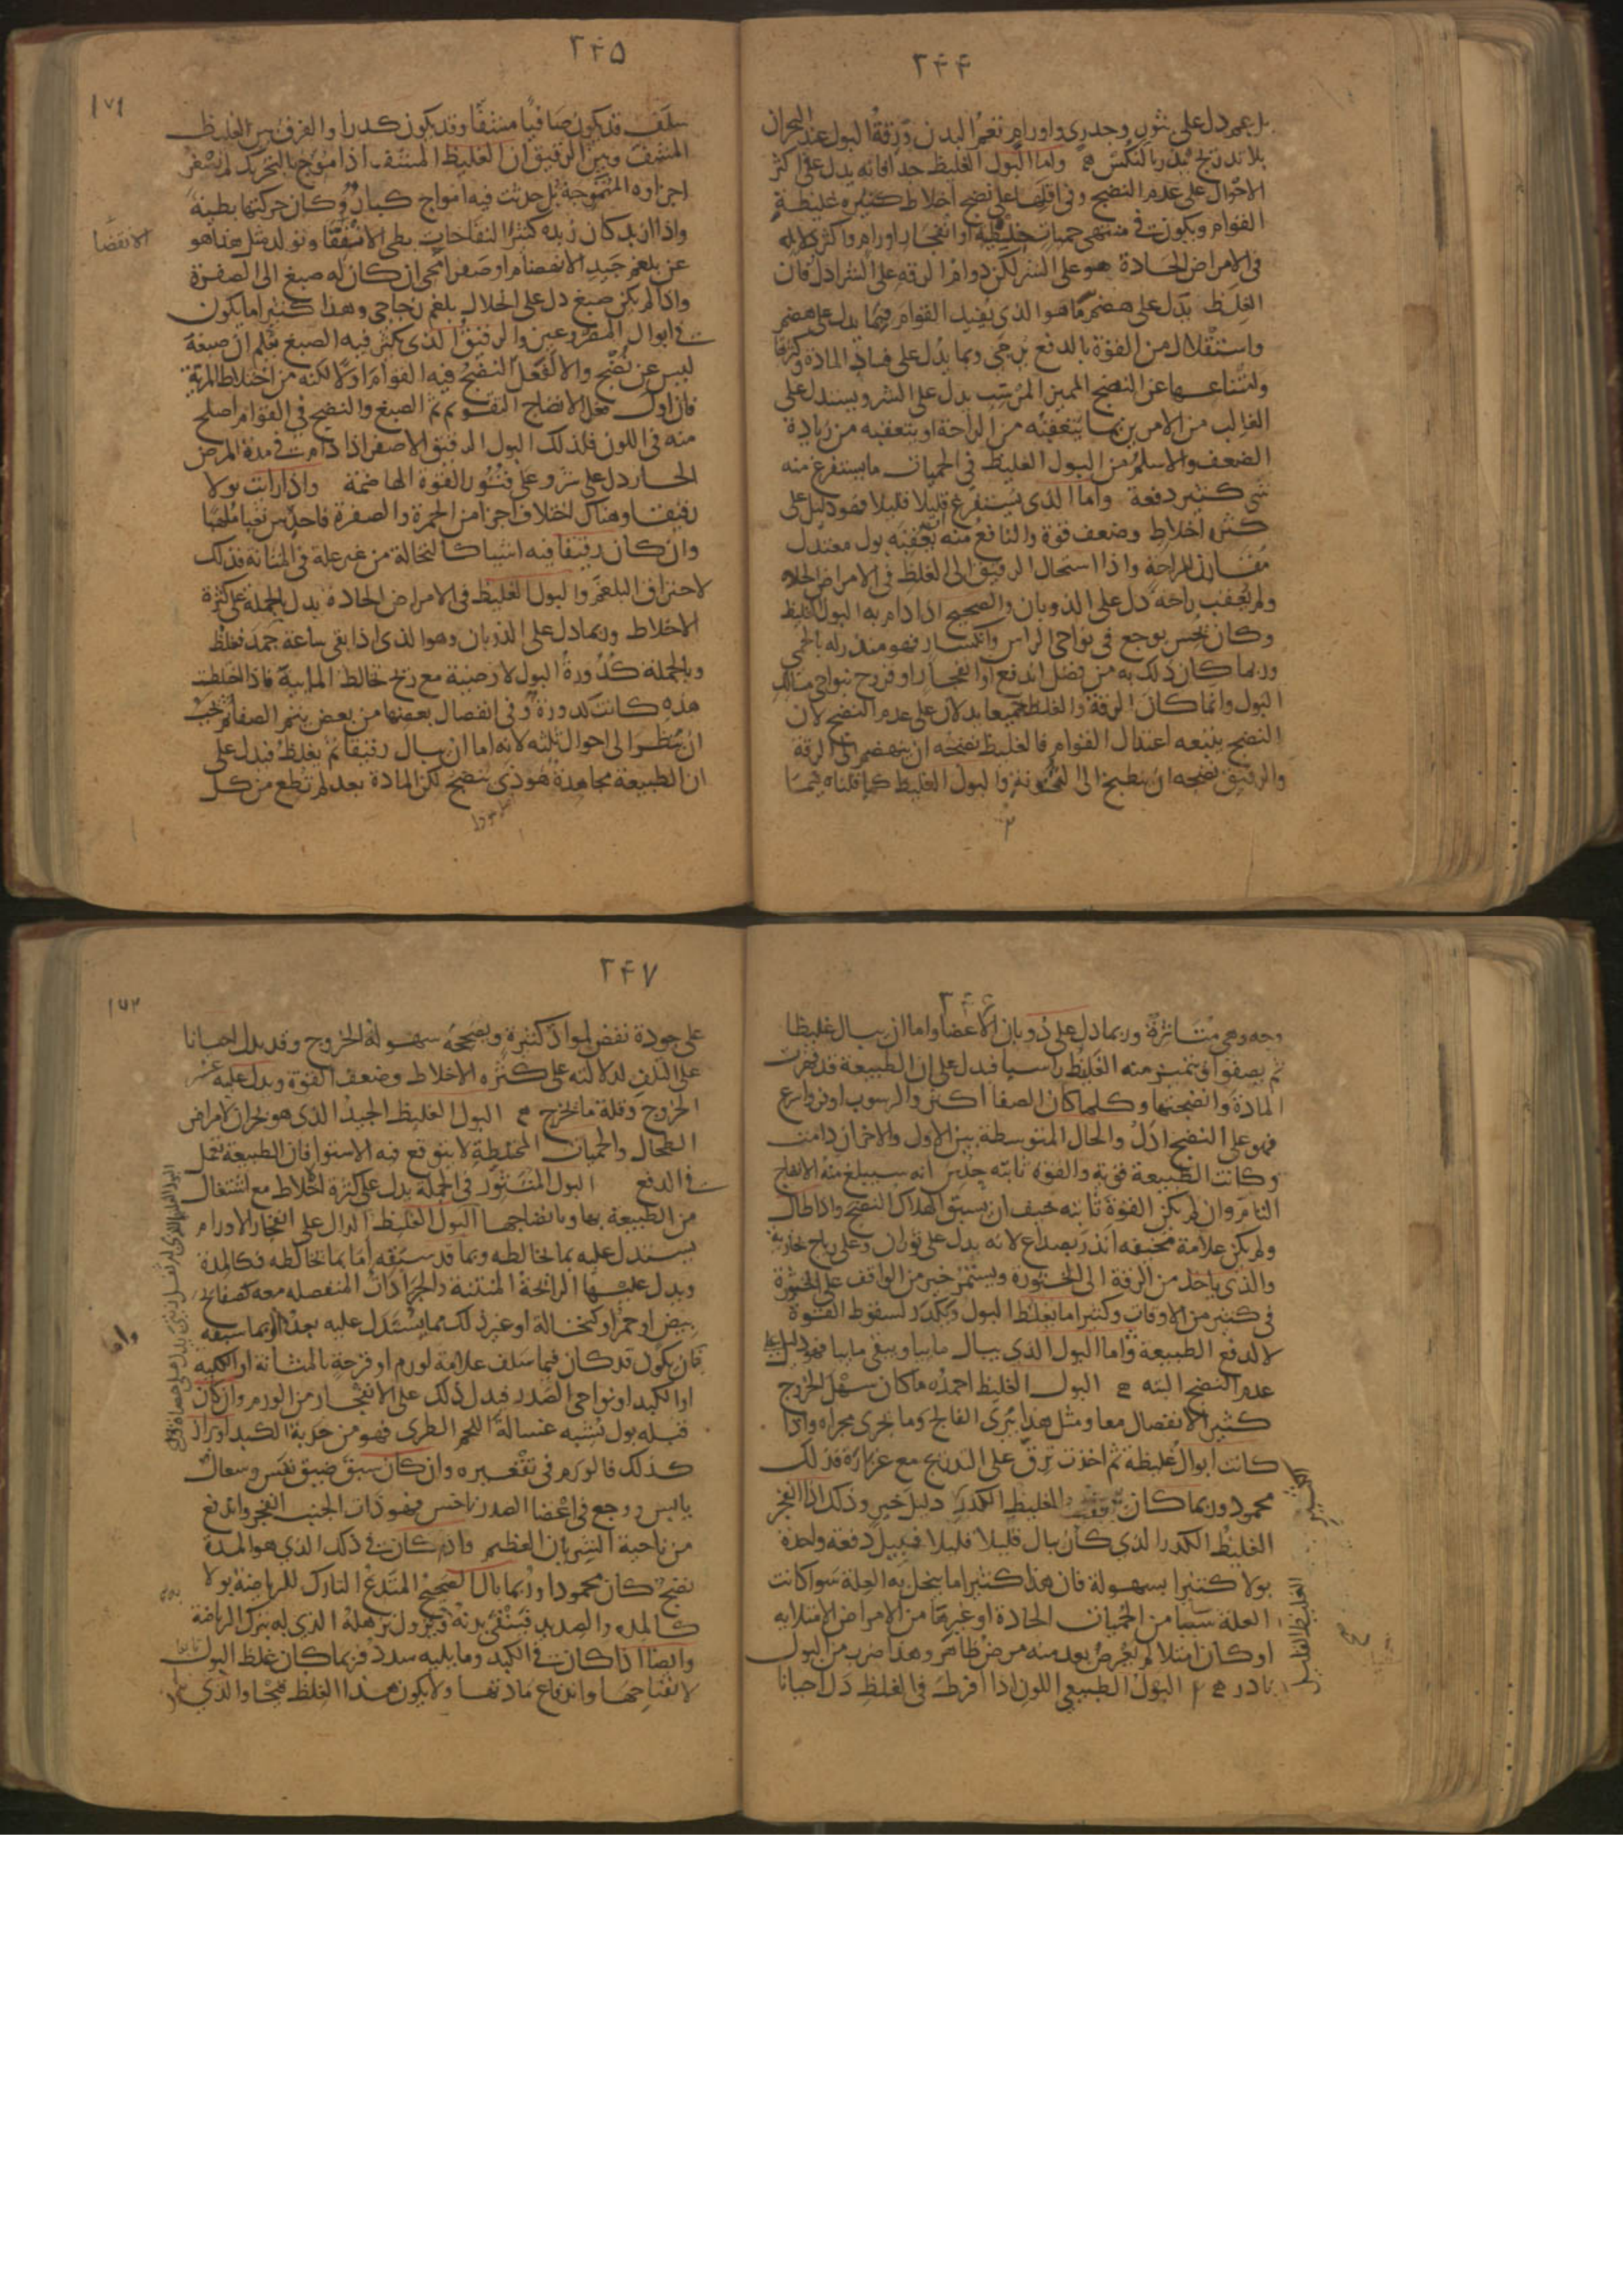 ٢۴۴
بل يعم دل على بثور وجدري واورام تعم البدن ورقة البول عند البحران
بلا تدريج ينذر بالنكس واما البول الغليظ جدا فانه يدل على اكثر
الاحوال على عدم النضج وفي اقلها على نضج اخلاط كثيره غليظة
القوام ويكون في منتهى حميات خلطية او انفجار اورام واكثر دلالته
في الامراض الحادة هو على الشر لكن دوام الرقه على الشر ادل فان
الغلظ يدل على هضم ما هو الذي يفيد القوام فيما يدل على هضم
واستقلال من القوة بالدفع يرجى وبما يدل على فساد المادة وكثرتها
وامتناعها عن النضج المميز المرسب يدل على الشر ويستدل على
الغالب من الامرين بما يتعقبه من الراحة او يتعقبه من زيادة
الضعف والاسلم من البول الغليظ في الحميات ما يستفرغ منه
شي كثير دفعة واما الذي يستفرغ قليلا قليلا فهو دليل على
كثرة اخلاط وضعف قوة والنافع منه يعقبه بول معتدل
مقارن للراحة واذا استحال الرقيق الى الغلظ في الامراض الحاده
ولم يعقب راحة دل على الذوبان والصحيح اذا دام به البول الغليظ
وكان يحس بوجع في نواحي الراس وانكسار فهو منذر له بالحمى
وربما كان ذلك به من فضل اندفع او انفجار او قروح بنواحي مسالك
البول وانما كان الرقة والغلظ جميعا يدلان على عدم النضج لان
النضج يتبعه اعتدال القوام فالغليظ نضجه ان ينهضم الى الرقة
والرقيق نضجه ان ينطبخ الى الثخونة والبول الغليظ كما قلناه فيما
٢۴۵
١٧١
سلف قد يكون صافيا مشفا وقد يكون كدرا والفرق بين الغليظ
المشف وبين الرقيق ان الغليظ المشف اذا موج بالتحريك لم تصغر
اجزاوه المتموجة بل حدثت فيه امواج كبار وكان حركتها بطيئة
واذا ازبد كان زبده كثير النفاخات بطي الانفقا وتولد مثل هذا هو
الانفقا
عن بلغم جيد الانهضام او صفرا محي ان كان له صبغ الى الصفرة
واذا لم يكن صبغ دل على انحلال بلغم زجاجي وهذا كثيرا ما يكون
في ابوال المصروعين والرقيق الذي يكثر فيه الصبغ يعلم ان صبغه
ليس عن نضج والا لفعل النضج فيه القوام اولا لكنه من اختلاط المرة به
فان اول فعل الانضاج التقويم ثم الصبغ والنضج في القوام اصلح
منه في اللون فلذلك البول الرقيق الاصفر اذا دام في مدة المرض
الحار دل على شر وعلى فتور القوة الهاضمة واذا رايت بولا
رقيقا وهناك اختلاف اجزا من الحمرة والصفرة فاحدس تعبا ملهبا
وان كان رقيقا فيه اشيا كالنخالة من غير علة في المثانة فذلك
لاحتراق البلغم والبول الغليظ في الامراض الحادة يدل بالجملة على كثرة
الاخلاط وربما دل على الذوبان وهو الذي اذا بقي ساعة جمد فغلظ
وبالجملة كدورة البول لارضية مع ريح تخالط المايية فاذا اختلطت
هذه كانت كدورة وفي انفصال بعضها من بعض يتم الصفا ثم يجب
ان ينظر الى احوال ثلثه لانه اما ان يبال رقيقا ثم يغلظ فيدل على
ان الطبيعة مجاهدة هوذي ينضج لكن المادة بعد لم تطع من كل
٢۴۶
وجه وهي متاثرة وربما دل على ذوبان الاعضا واما ان يبال غليظا
ثم يصفو اي يتميز منه الغليظ راسبا فيدل على ان الطبيعة قد قهرت
المادة وانضجتها وكلما كان الصفا اكثر والرسوب اوفر واسرع
فهو على النضج ادل والحال المتوسطة بين الاول والاخر ان دامت
وكانت الطبيعة قوية والقوة ثابته حدس انه سيبلغ منه الانضاج
التام وان لم يكن القوة ثابته خيف ان يسبق الهلاك النضج واذا طال
ولم يكن علامة مخيفه انذر بصداع لانه يدل على ثوران وعلى رياح بخارية
والذي ياخذ من الرقة الى الخثورة ويستمر خير من الواقف على الخثورة
في كثير من الاوقات وكثيرا ما يغلظ البول ويكدر لسقوط القوة
لا لدفع الطبيعة واما البول الذي يبال ماييا ويبقى ماييا فهو دليل على
عدم النضج البته البول الغليظ احمده ما كان سهل الخروج
كثير الانفصال معا ومثل هذا يبرى الفالج وما يجري مجراه واذا
كانت ابوال غليظة ثم اخذت ترق على التدريج مع غزارة فذلك
محمود وربما كان الغليظ الكدر دليل خير وذلك اذا انفجر
الغليظ الكدر الذي كان يبال قليلا قليلا فبيل دفعة واحدة
بولا كثيرا بسهولة فان هذا كثيرا ما ينحل به العلة سوا كانت
العلة سببا من الحميات الحادة او غيرها من الامراض الامتلايه
او كان امتلا لم يعرض بعد منه مرض ظاهر وهذا ضرب من البول
نادر البول الطبيعي اللون اذا افرط في الغلظ دل احيانا
٢۴٧
١٧٢
على جودة نفض لمواد كثيرة ويصححه سهولة الخروج وقد يدل احيانا
على التلف لدلالته على كثره الاخلاط وضعف القوة ويدل عليه عسر
الخروج وقلة ما يخرج البول الغليظ الجيد الذي هو بحران لامراض
الطحال والحميات المختلطة لا يتوقع فيه الاستوا فان الطبيعة تعمل
في الدفع البول المتثور في الجملة يدل على كثرة اخلاط مع اشتغال
من الطبيعة بها وبانضاجها البول الغليظ الدال على انفجار الاورام
يستدل عليه بما يخالطه وبما قد سبقه اما بما يخالطه فكالمدة
ويدل عليها الرائحة المنتنة والجرادات المنفصله معه كصفايح
بيض او حمر او كنخالة او غير ذلك مما يستدل عليه بعد واما بما سبقه
واما
فان يكون قد كان فيما سلف علامة لورم او قرحة بالمثانة او الكليه
او الكبد او نواحي الصدر فيدل ذلك على الانفجار من الورم وان كان
قبله بول يشبه غسالة اللحم الطري فهو من حدبة الكبد او براز
كذلك فالورم في تقعيره وان كان سبق ضيق نفس وسعال
يابس ووجع في اعضا الصدر ناخس فهو ذات الجنب انفجر واندفع
من ناحية الشريان العظيم واذا كان في ذلك الذي هو المدة
نضج كان محمودا وربما بال الصحيح المتدع التارك للرياضة بولا
كالمدة والصديد فيتنقى بدنه ويزول ترهله الذي له بترك الرياضة
وايضا اذا كان في الكبد وما يليه سدد فربما كان غلظ البول
لانفتاحها واندفاع مادتها ولا يكون هذا الغلظ قيحا والذي